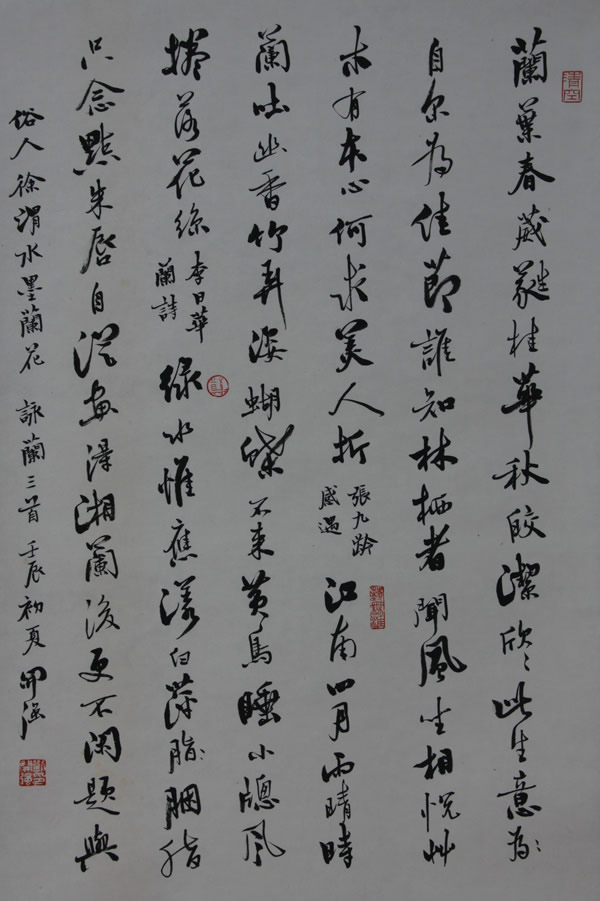 清空
蘭葉春葳蕤桂華秋皎潔欣々此生意為
自尔為佳節誰知林栖者聞風坐相悦艸
木有本心何求美人折
張九齡
感遇
江南四月雨晴時
蘭吐幽香竹弄姿蝴蝶不来黄鳥睡小牕風
捲落花絲
李日華
蘭詩
緑水惟應漾白萍脂胭脂
只念點朱唇自從畫得湘蘭後更不閑題與
俗人徐渭水墨蘭花 詠蘭三首 壬辰初夏